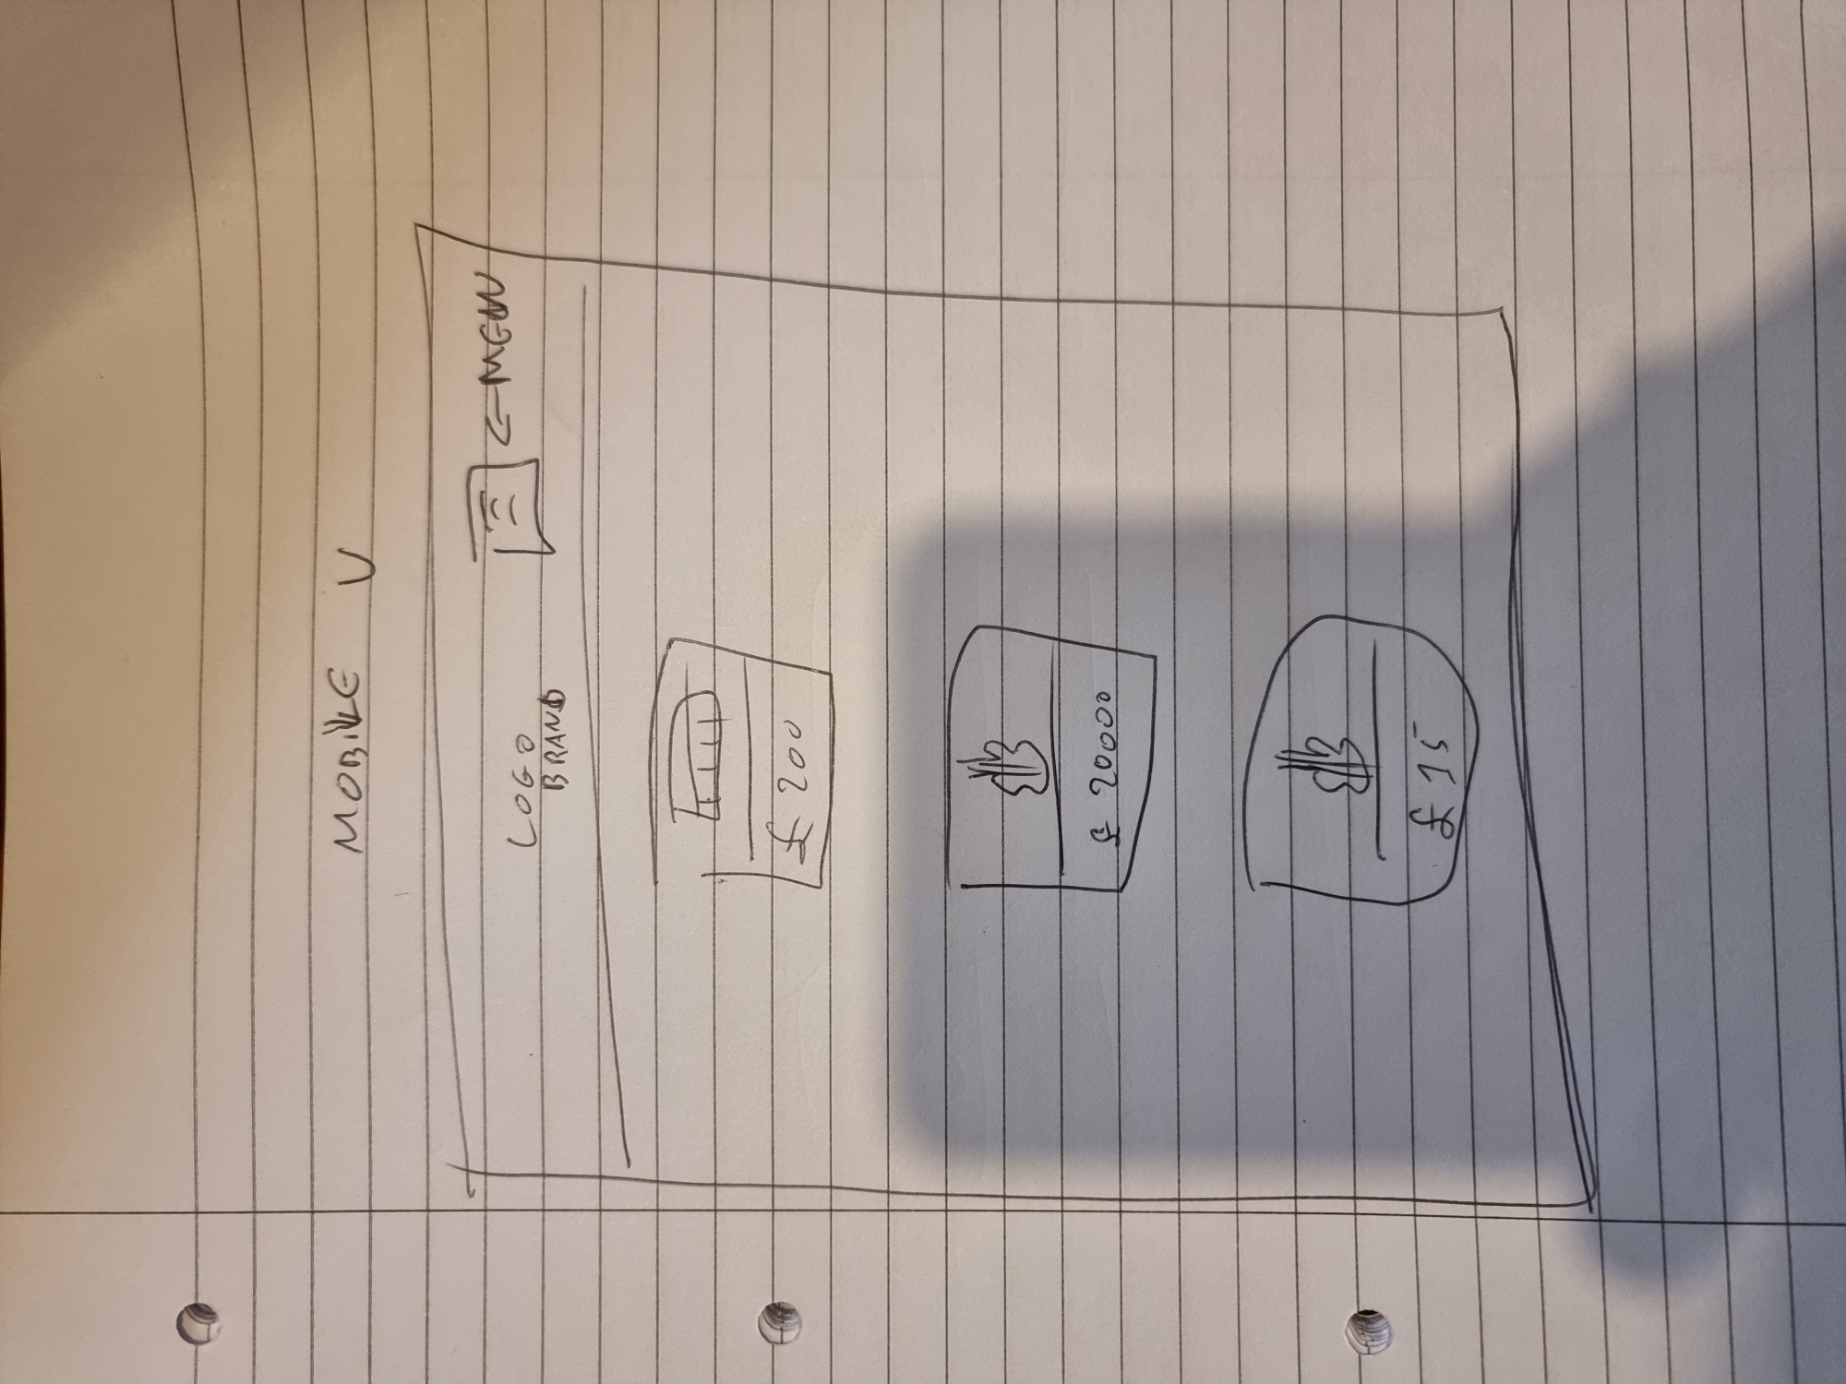 MOBILE V
LOGO
BRAND
← MENU
£ 200
£ 20000
£ 15